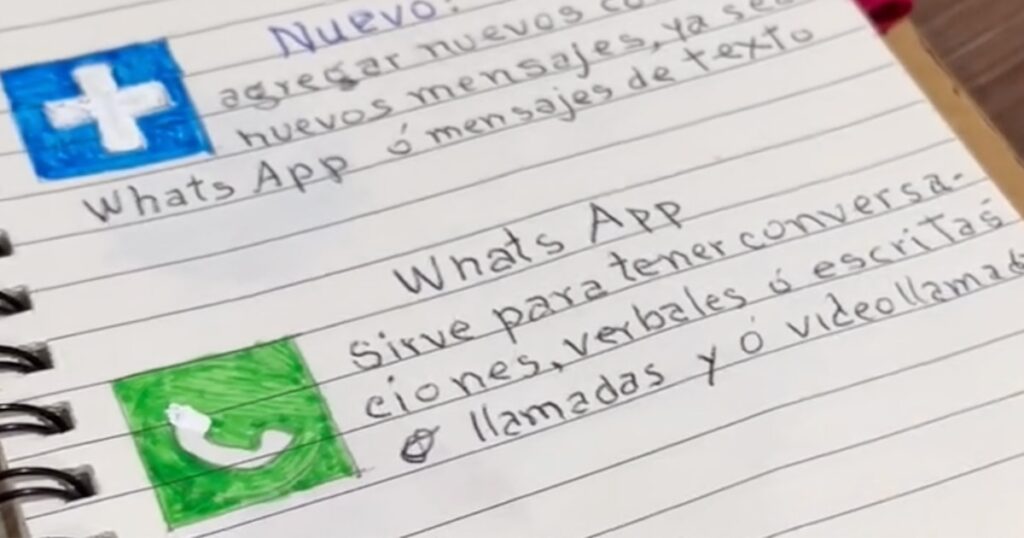 Nuevo:
agregar nuevos
nuevos mensajes, ya sea
Whats App ó mensajes de texto
Whats App
Sirve para tener conversa-
ciones, verbales ó escritas
llamadas y ó videollamad